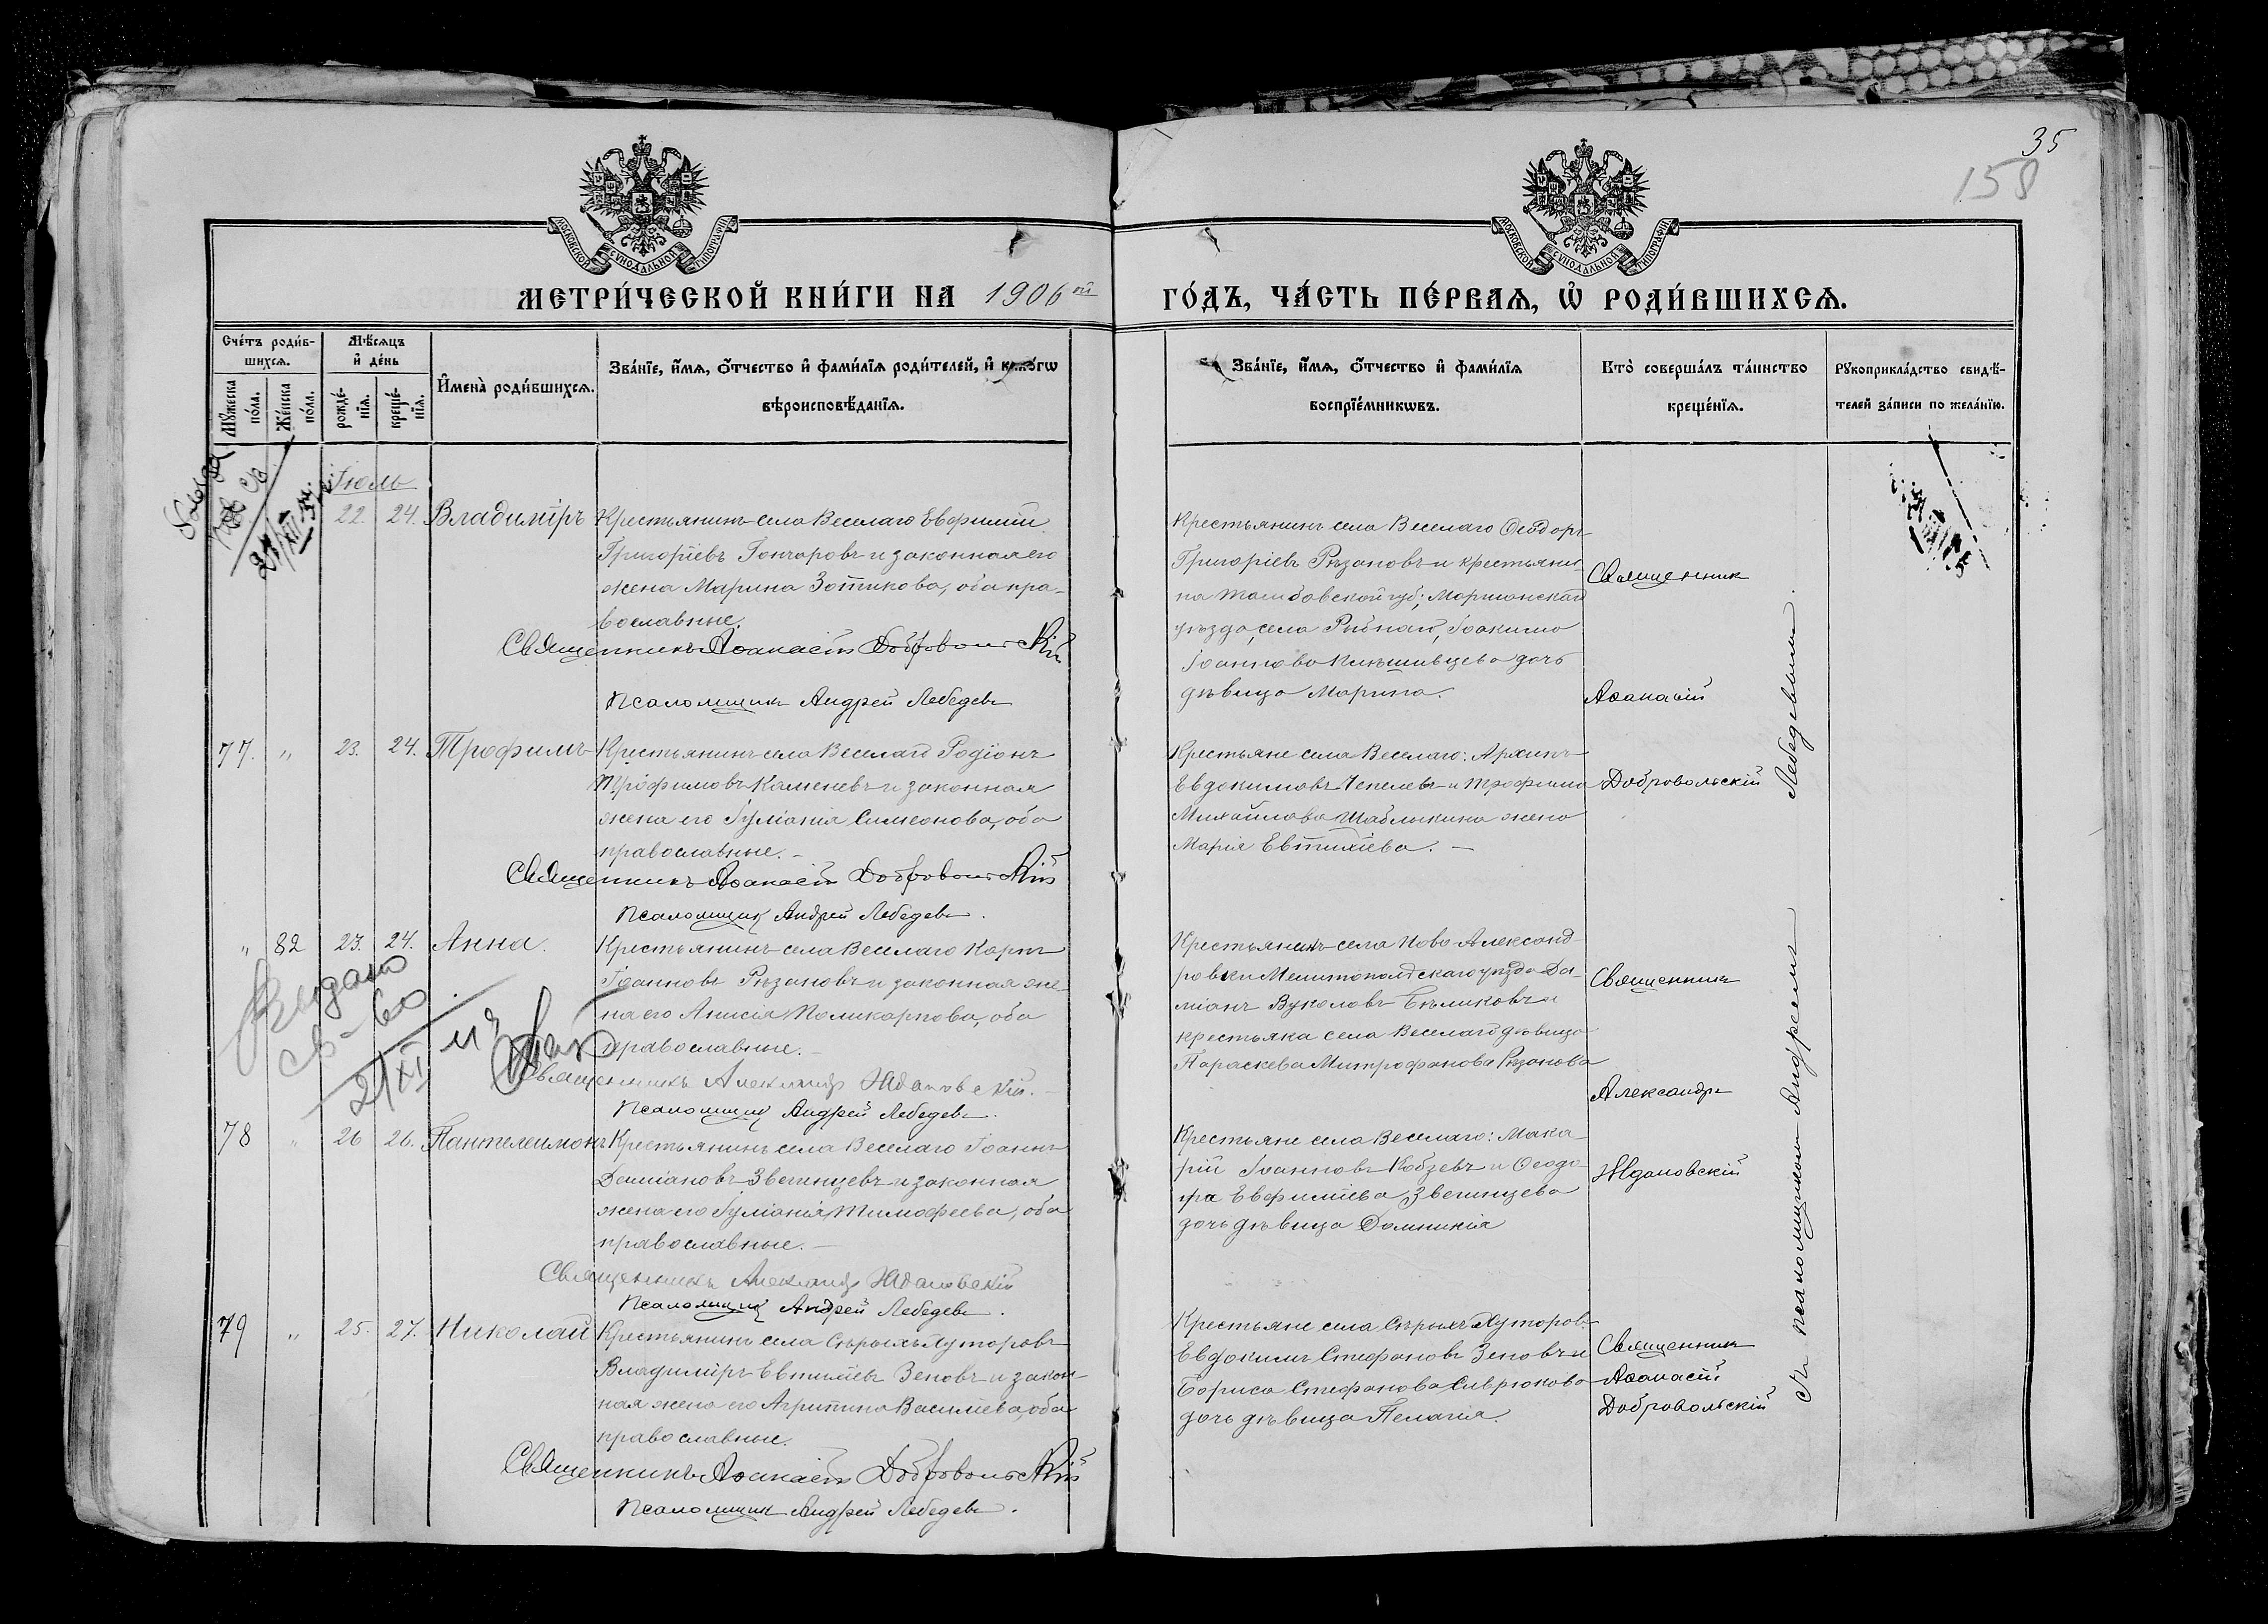 35
158
МОСКОВСКОЙ СѴНОДАЛЬНОЙ ТИПОГРАФІИ
МОСКОВСКОЙ СѴНОДАЛЬНОЙ ТИПОГРАФІИ
МЕТРИ́ЧЕСКОЙ КНИ́ГИ НА 1906 ой ГО́ДЪ, ЧА́СТЬ ПЕ́РВАЯ, Ѡ҆ РОДИ́ВШИХСЯ.
Сче́тъ роди́в-
шихся.
Мѣ́сяцъ
и҆ де́нь
Мꙋ́жеска
по́ла.
Же́нска
по́ла.
рожде́-
нїя.
креще́-
нїя.
И҆мена̀ роди́вшихся.
Зва́нїе, и҆́мя, ѻ҆́тчество и҆ фами́лїя роди́телей, и҆ како́гѡ
вѣроисповѣ́данїя.
Зва́нїе, и҆́мя, ѻ҆́тчество и҆ фами́лїя
воспрїе́мникѡвъ.
Кто̀ соверша́лъ та́инство
креще́нїя.
Рꙋкоприкла́дство свидѣ́-
телей за́писи по жела́нїю.
Іюль
22. 24. Владиміръ
Крестьянинъ села Веселаго Евфимій
Григоріевъ Гончаровъ и законная его
жена Марина Зотикова, оба пра-
вославные.
Священникъ Аѳанасій Добровольскій
Псаломщикъ Андрей Лебедевъ
Крестьянинъ села Веселаго Ѳеодоръ
Григоріевъ Рѣзановъ и крестьяни-
на Тамбовской губ; Моршанскаго
уѣзда, села Рыбнаго, Іоакима
Іоаннова дочь
дѣвица Марина.
Священник
Аѳанасій
Добровольскій
77. " 23. 24. Трофимъ
Крестьянинъ села Веселаго Родіонъ
Трофимовъ Каменевъ и законная
жена его Іуліанія Симеонова, оба
православные. –
Священникъ Аѳанасій Добровольскій
Псаломщикъ Андрей Лебедевъ.
Крестьяне села Веселаго: Архипъ
Евдокимовъ Чепелевъ и Трофима
Михайлова Шаблыкина жена
Марія Евтихіева. –
" 82 23. 24. Анна.
Крестьянинъ села Веселаго Карпъ
Іоанновъ Рѣзановъ и законная же-
на его Анисія Поликарпова, оба
православные. –
Священникъ Александр Ждановскій. –
Псаломщикъ Андрей Лебедевъ.
Крестьянинъ села Ново-Александ-
ровки Мелитопольскаго уѣзда Да-
міанъ Вуколовъ Бѣликовъ и
крестьянка села Веселаго дѣвица
Параскева Митрофанова Рѣзанова
Священникъ
Александръ
Ждановскій
Выдано
св-во
21/XI
78 " 26 26. Пантелеимонъ
Крестьянинъ села Веселаго Іоаннъ
Даміановъ Звегинцевъ и законная
жена его Іуліанія Тимофеева, оба
православные. –
Священникъ Александр Ждановскій
Псаломщикъ Андрей Лебедевъ.
Крестьяне села Веселаго: Мака-
рій Іоанновъ Кобзевъ и Ѳеодо-
ра Евфиміева Звегинцева
дочь дѣвица Домникія
79 " 25. 27. Николай
Крестьянинъ села Сѣрыхъ Хуторовъ
Владиміръ Евтихіевъ Зеновъ и закон-
ная жена его Агрипина Васильева, оба
православные.
Священникъ Аѳанасій Добровольскій
Псаломщикъ Андрей Лебедевъ.
Крестьяне села Сѣрыхъ Хуторовъ
Евдокимъ Стефановъ Зеновъ и
Бориса Стефанова Саврюкова
дочь дѣвица Пелагія.
Священникъ
Аѳанасій
Добровольскій
съ псаломщикомъ Андреемъ Лебедевымъ.